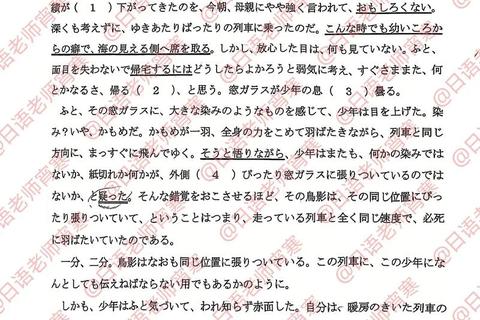 績が（ 1 ）下がってきたのを、今朝、母親にやや強く言われて、おもしろくない。
深くも考えずに、ゆきあたりばったりの列車に乗ったのだ。こんな時でも幼いころか
らの癖で、海の見える側へ席を取る。しかし、放心した目は、何も見ていない。ふと、
面目を失わないで帰宅するにはどうしたらよかろうと弱気に考え、すぐさままた、何
とかなるさ、帰る（ 2 ）、と思う。窓ガラスが少年の息（ 3 ）曇る。
ふと、その窓ガラスに、大きな染みのようなものを感じて、少年は目を上げた。染
み？いや、かもめだ。かもめが一羽、全身の力をこめて羽ばたきながら、列車と同じ
方向に、まっすぐに飛んでゆく。そうと悟りながら、少年はまたも、何かの染みでは
ないか、紙切れか何かが、外側（ 4 ）ぴったり窓ガラスに張りついているのでは
ないか、と疑った。そんな錯覚をおこさせるほど、その鳥影は、その同じ位置にぴっ
たり張りついていて、ということはつまり、走っている列車と全く同じ速度で、必死
に羽ばたいていたのである。
一分、二分。鳥影はなおも同じ位置に張りついている。この列車に、この少年にな
んとしても伝えねばならない用でもあるかのように。
しかも、少年はふと気づいて、われ知らず赤面した。自分は、暖房のきいた列車の
@日语老师宵寒